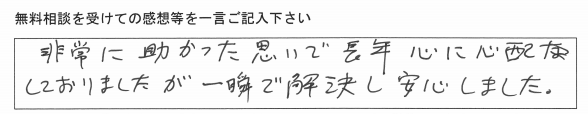 無料相談を受けての感想等を一言ご記入下さい
非常に助かった思いで長年心に心配事
しておりましたが一瞬で解決し安心しました。